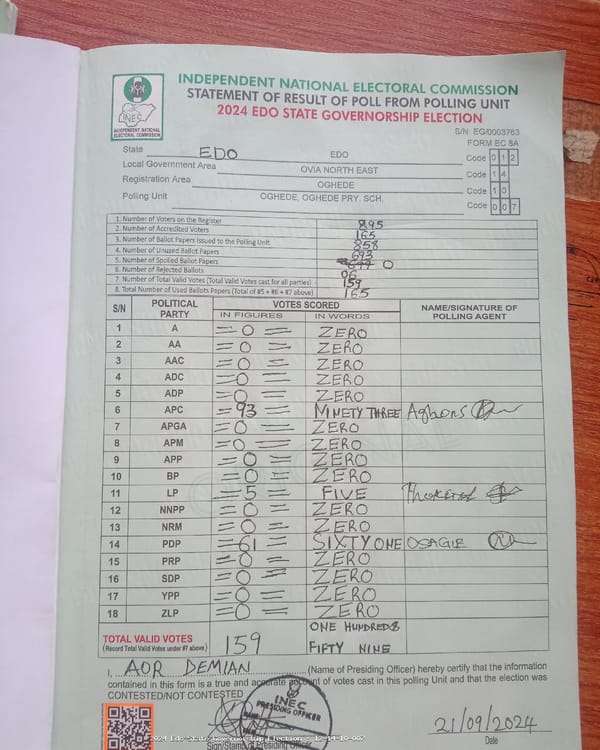 INDEPENDENT NATIONAL ELECTORAL COMMISSION
STATEMENT OF RESULT OF POLL FROM POLLING UNIT
2024 EDO STATE GOVERNORSHIP ELECTION
INEC
INDEPENDENT NATIONAL
ELECTORAL COMMISSION
S/N: EG/0003763
FORM EC 8A
State EDO EDO Code 0 1 2
Local Government Area OVIA NORTH EAST Code 1 4
Registration Area OGHEDE Code 1 0
Polling Unit OGHEDE, OGHEDE PRY. SCH. Code 0 0 7
1. Number of Voters on the Register 895
2. Number of Accredited Voters 165
3. Number of Ballot Papers Issued to the Polling Unit 858
4. Number of Unused Ballot Papers 693
5. Number of Spoiled Ballot Papers 0
6. Number of Rejected Ballots 06
7. Number of Total Valid Votes (Total Valid Votes cast for all parties) 159
8. Total Number of Used Ballots Papers (Total of #5 + #6 + #7 above) 165
S/N POLITICAL PARTY VOTES SCORED NAME/SIGNATURE OF POLLING AGENT
IN FIGURES IN WORDS
1 A =0= ZERO
2 AA =0= ZERO
3 AAC =0= ZERO
4 ADC =0= ZERO
5 ADP =0= ZERO
6 APC =93= NINETY THREE
7 APGA =0= ZERO
8 APM =0= ZERO
9 APP =0= ZERO
10 BP =0= ZERO
11 LP =5= FIVE
12 NNPP =0= ZERO
13 NRM =0= ZERO
14 PDP =61= SIXTY ONE OSAGIE
15 PRP =0= ZERO
16 SDP =0= ZERO
17 YPP =0= ZERO
18 ZLP =0= ZERO
TOTAL VALID VOTES 159 ONE HUNDRED &
(Record Total Valid Votes under #7 above) FIFTY NINE
I, AOR DEMIAN (Name of Presiding Officer) hereby certify that the information
contained in this form is a true and accurate account of votes cast in this polling Unit and that the election was
CONTESTED/NOT CONTESTED
INEC
PRESIDING OFFICER
21/09/2024
Sign/Stamp of Presiding Officer Date